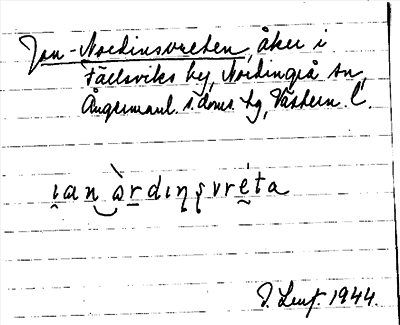 Jan-Nordinsvreten, åker i
Fällsviks by, Nordingrå sn,
Ångermanl. s. doms. hg, Västern. l.
ı̯an‿àrdıņșvréta
J. Leuf. 1944.